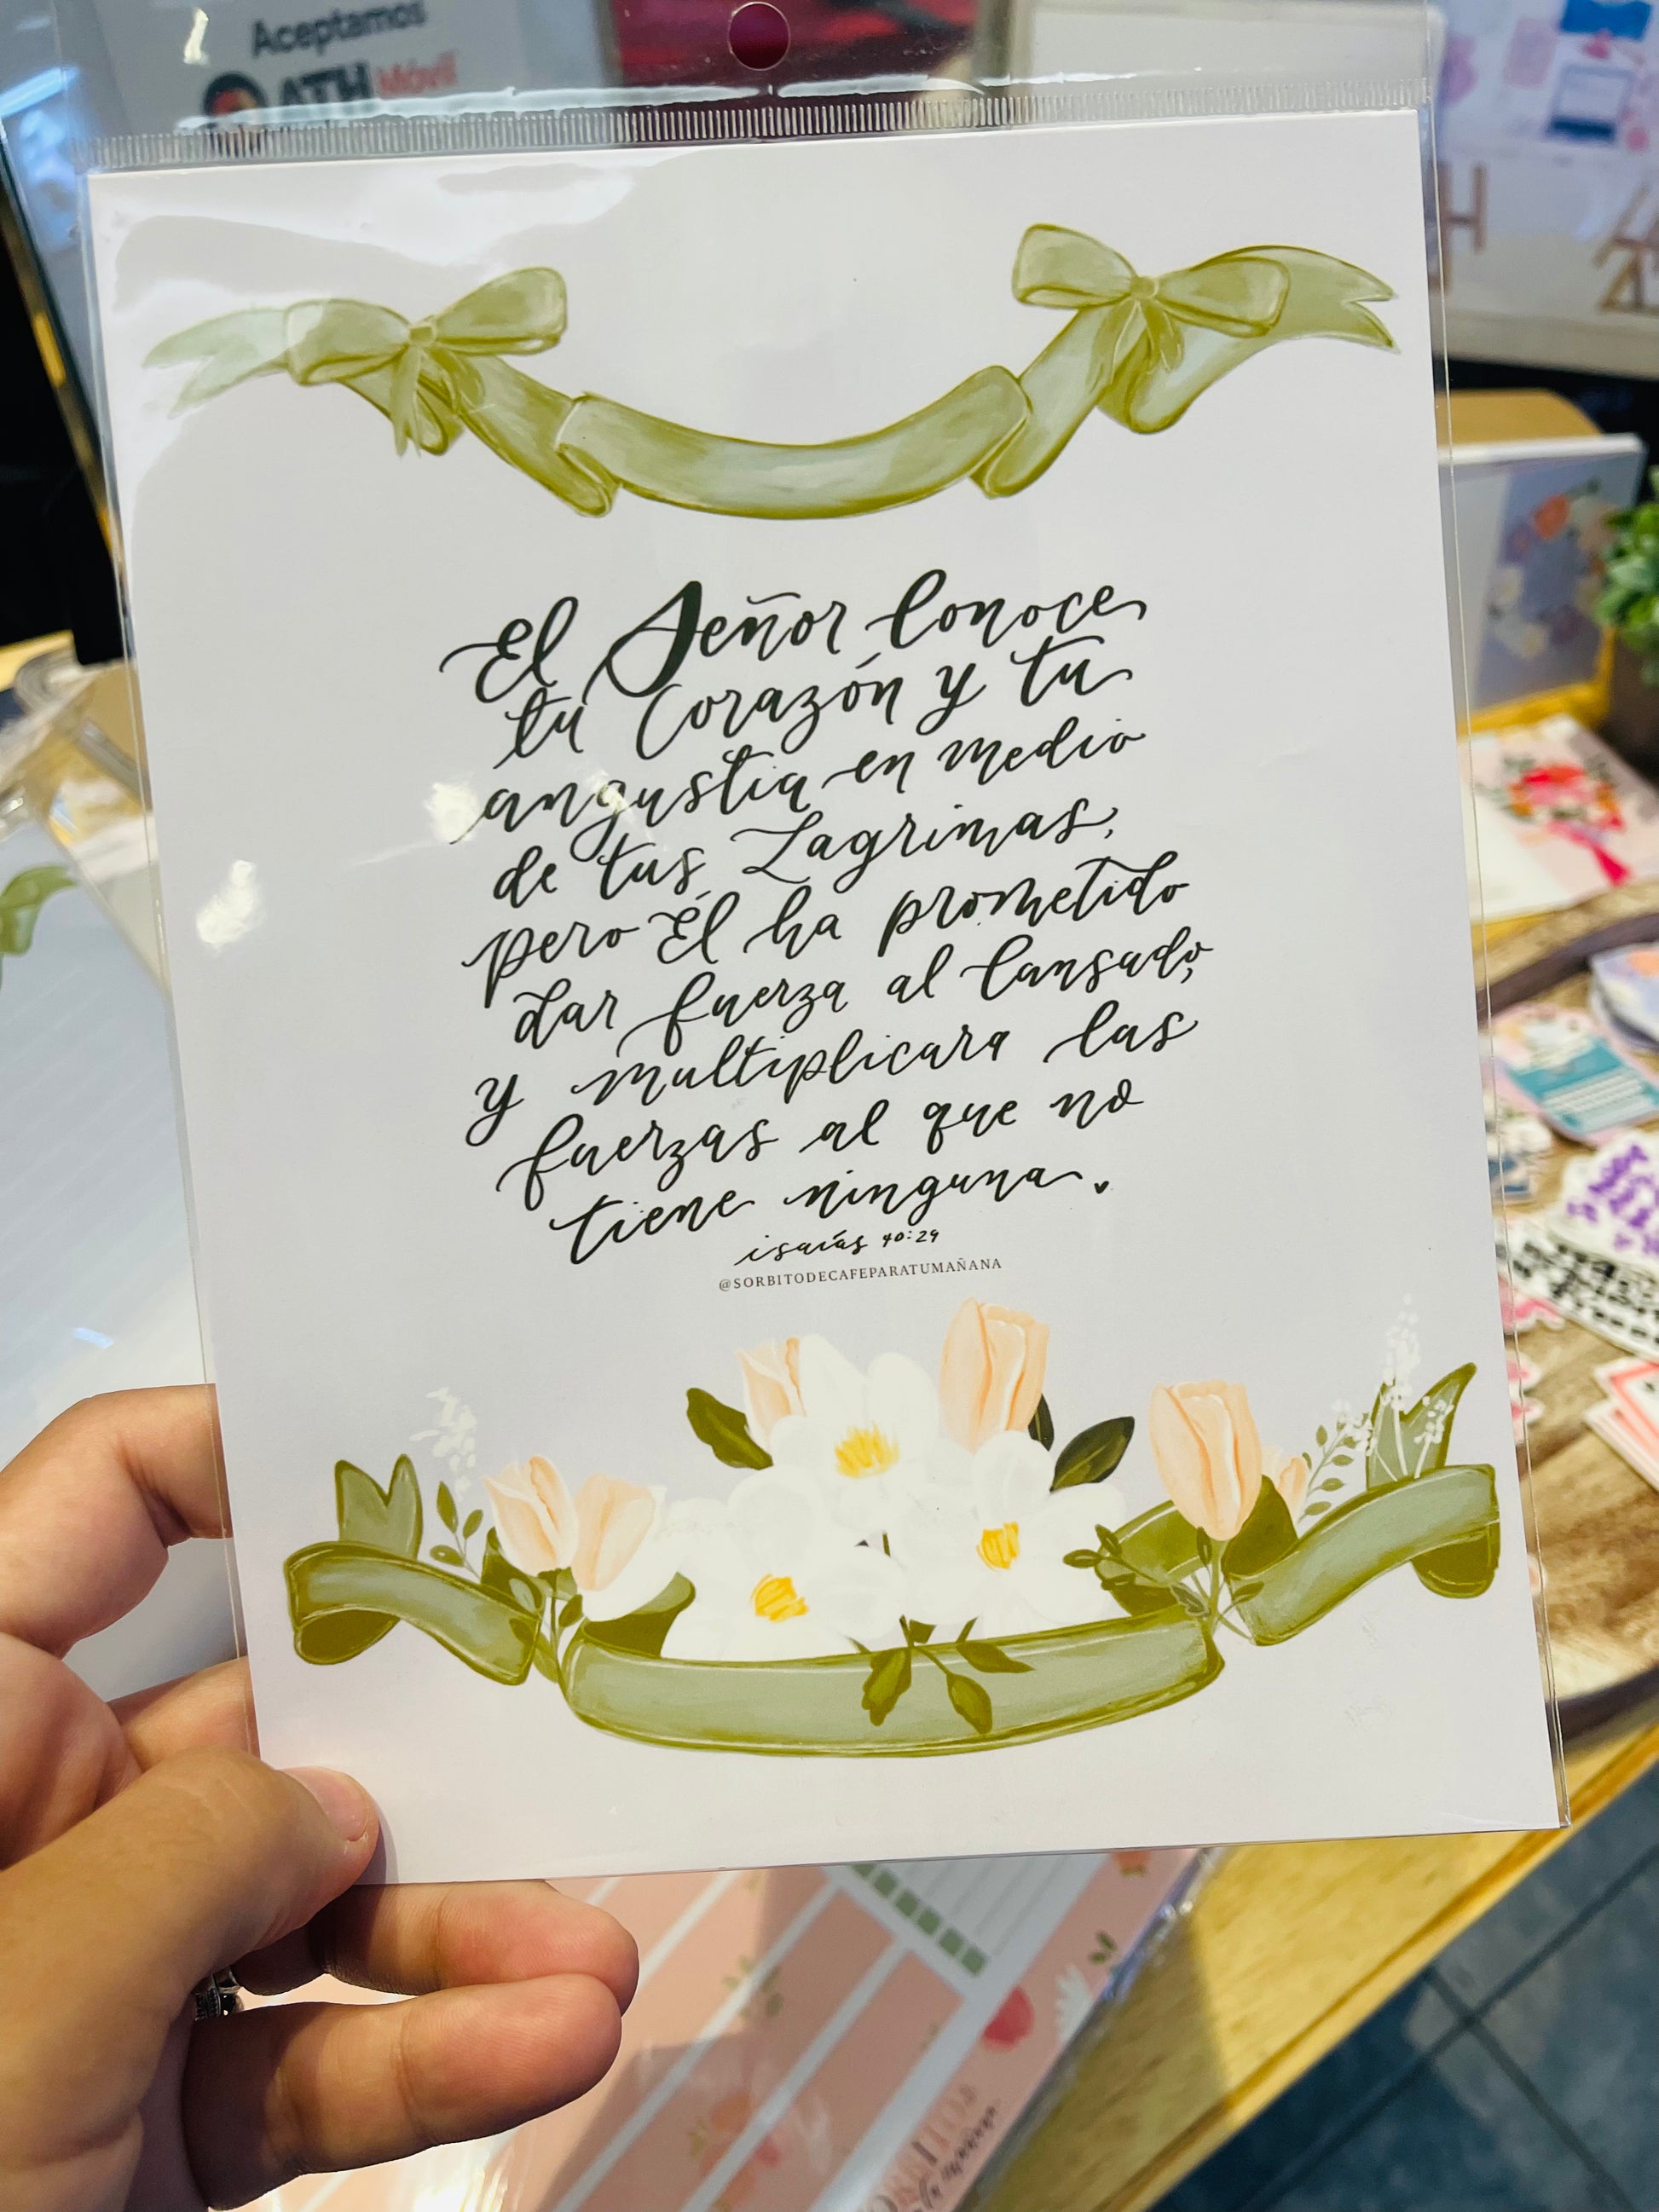 Aceptamos
ATH Móvil
El Señor Conoce
tu Corazón y tu
angustia en medio
de tus Lagrimas,
pero Él ha prometido
dar fuerza al Cansado,
y multiplicara las
fuerzas al que no
tiene ninguna.
isaías 40:29
@SORBITODECAFEPARATUMAÑANA